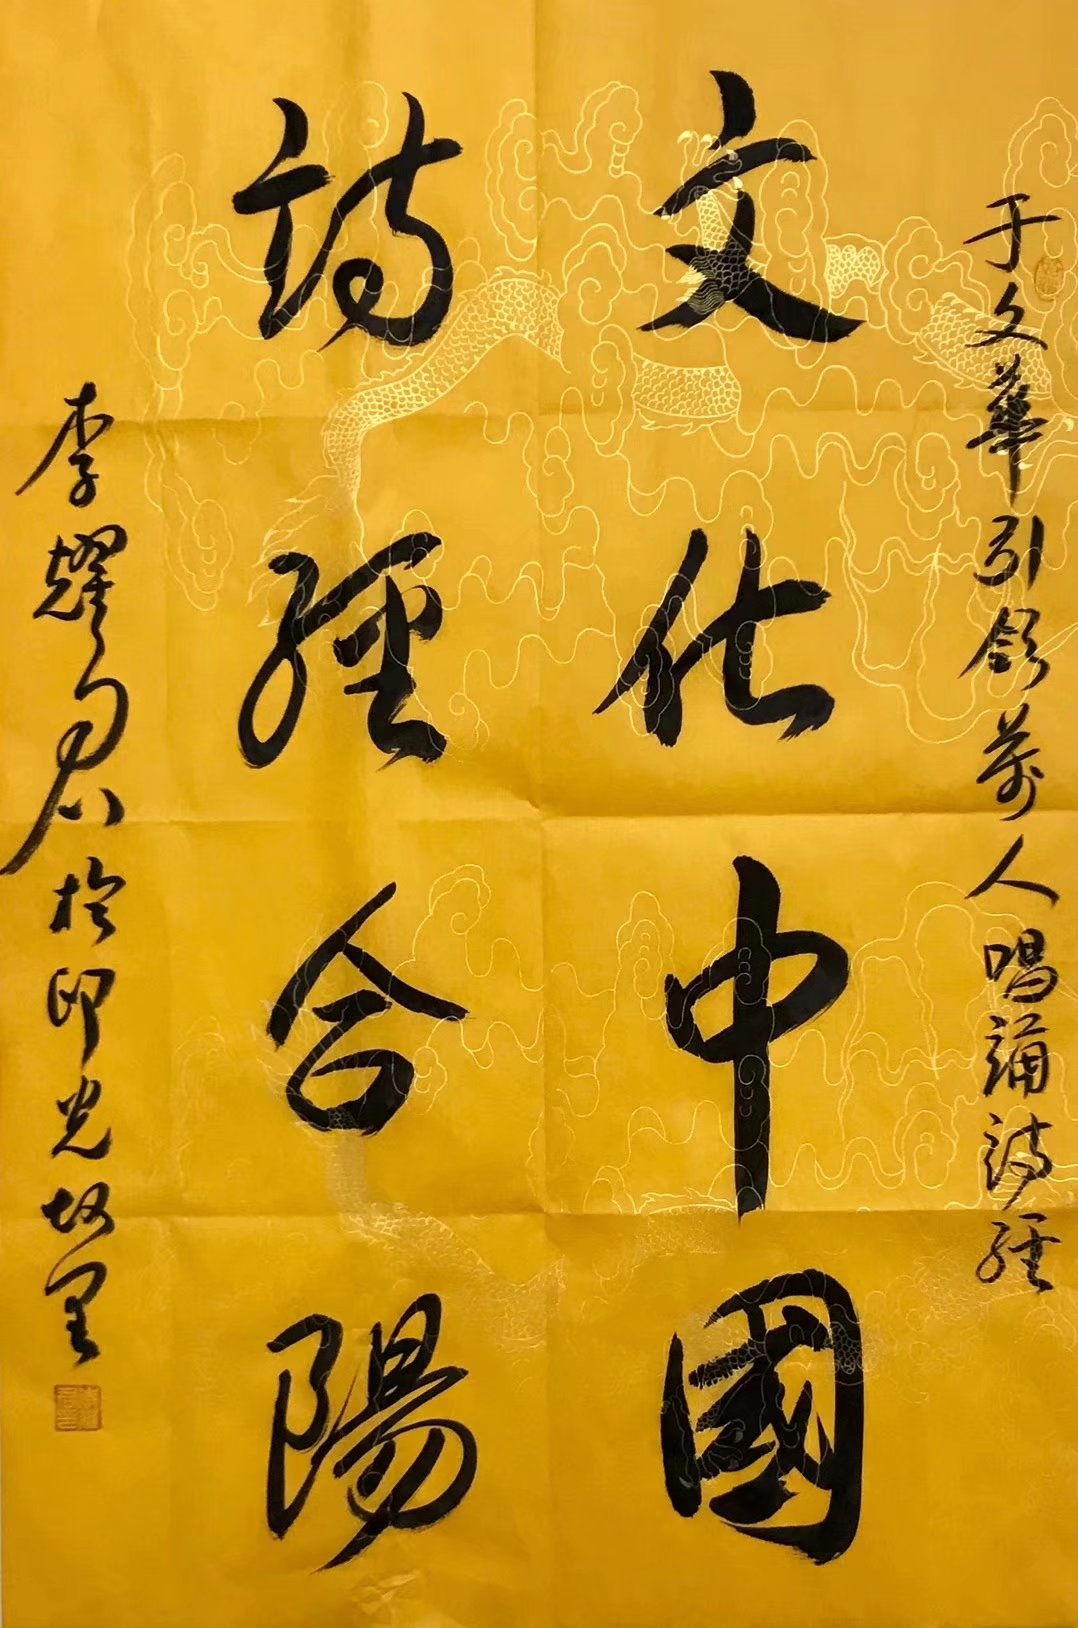 于文華引領萬人唱誦詩經
文化中國
詩經合陽
李耀君於印光故里